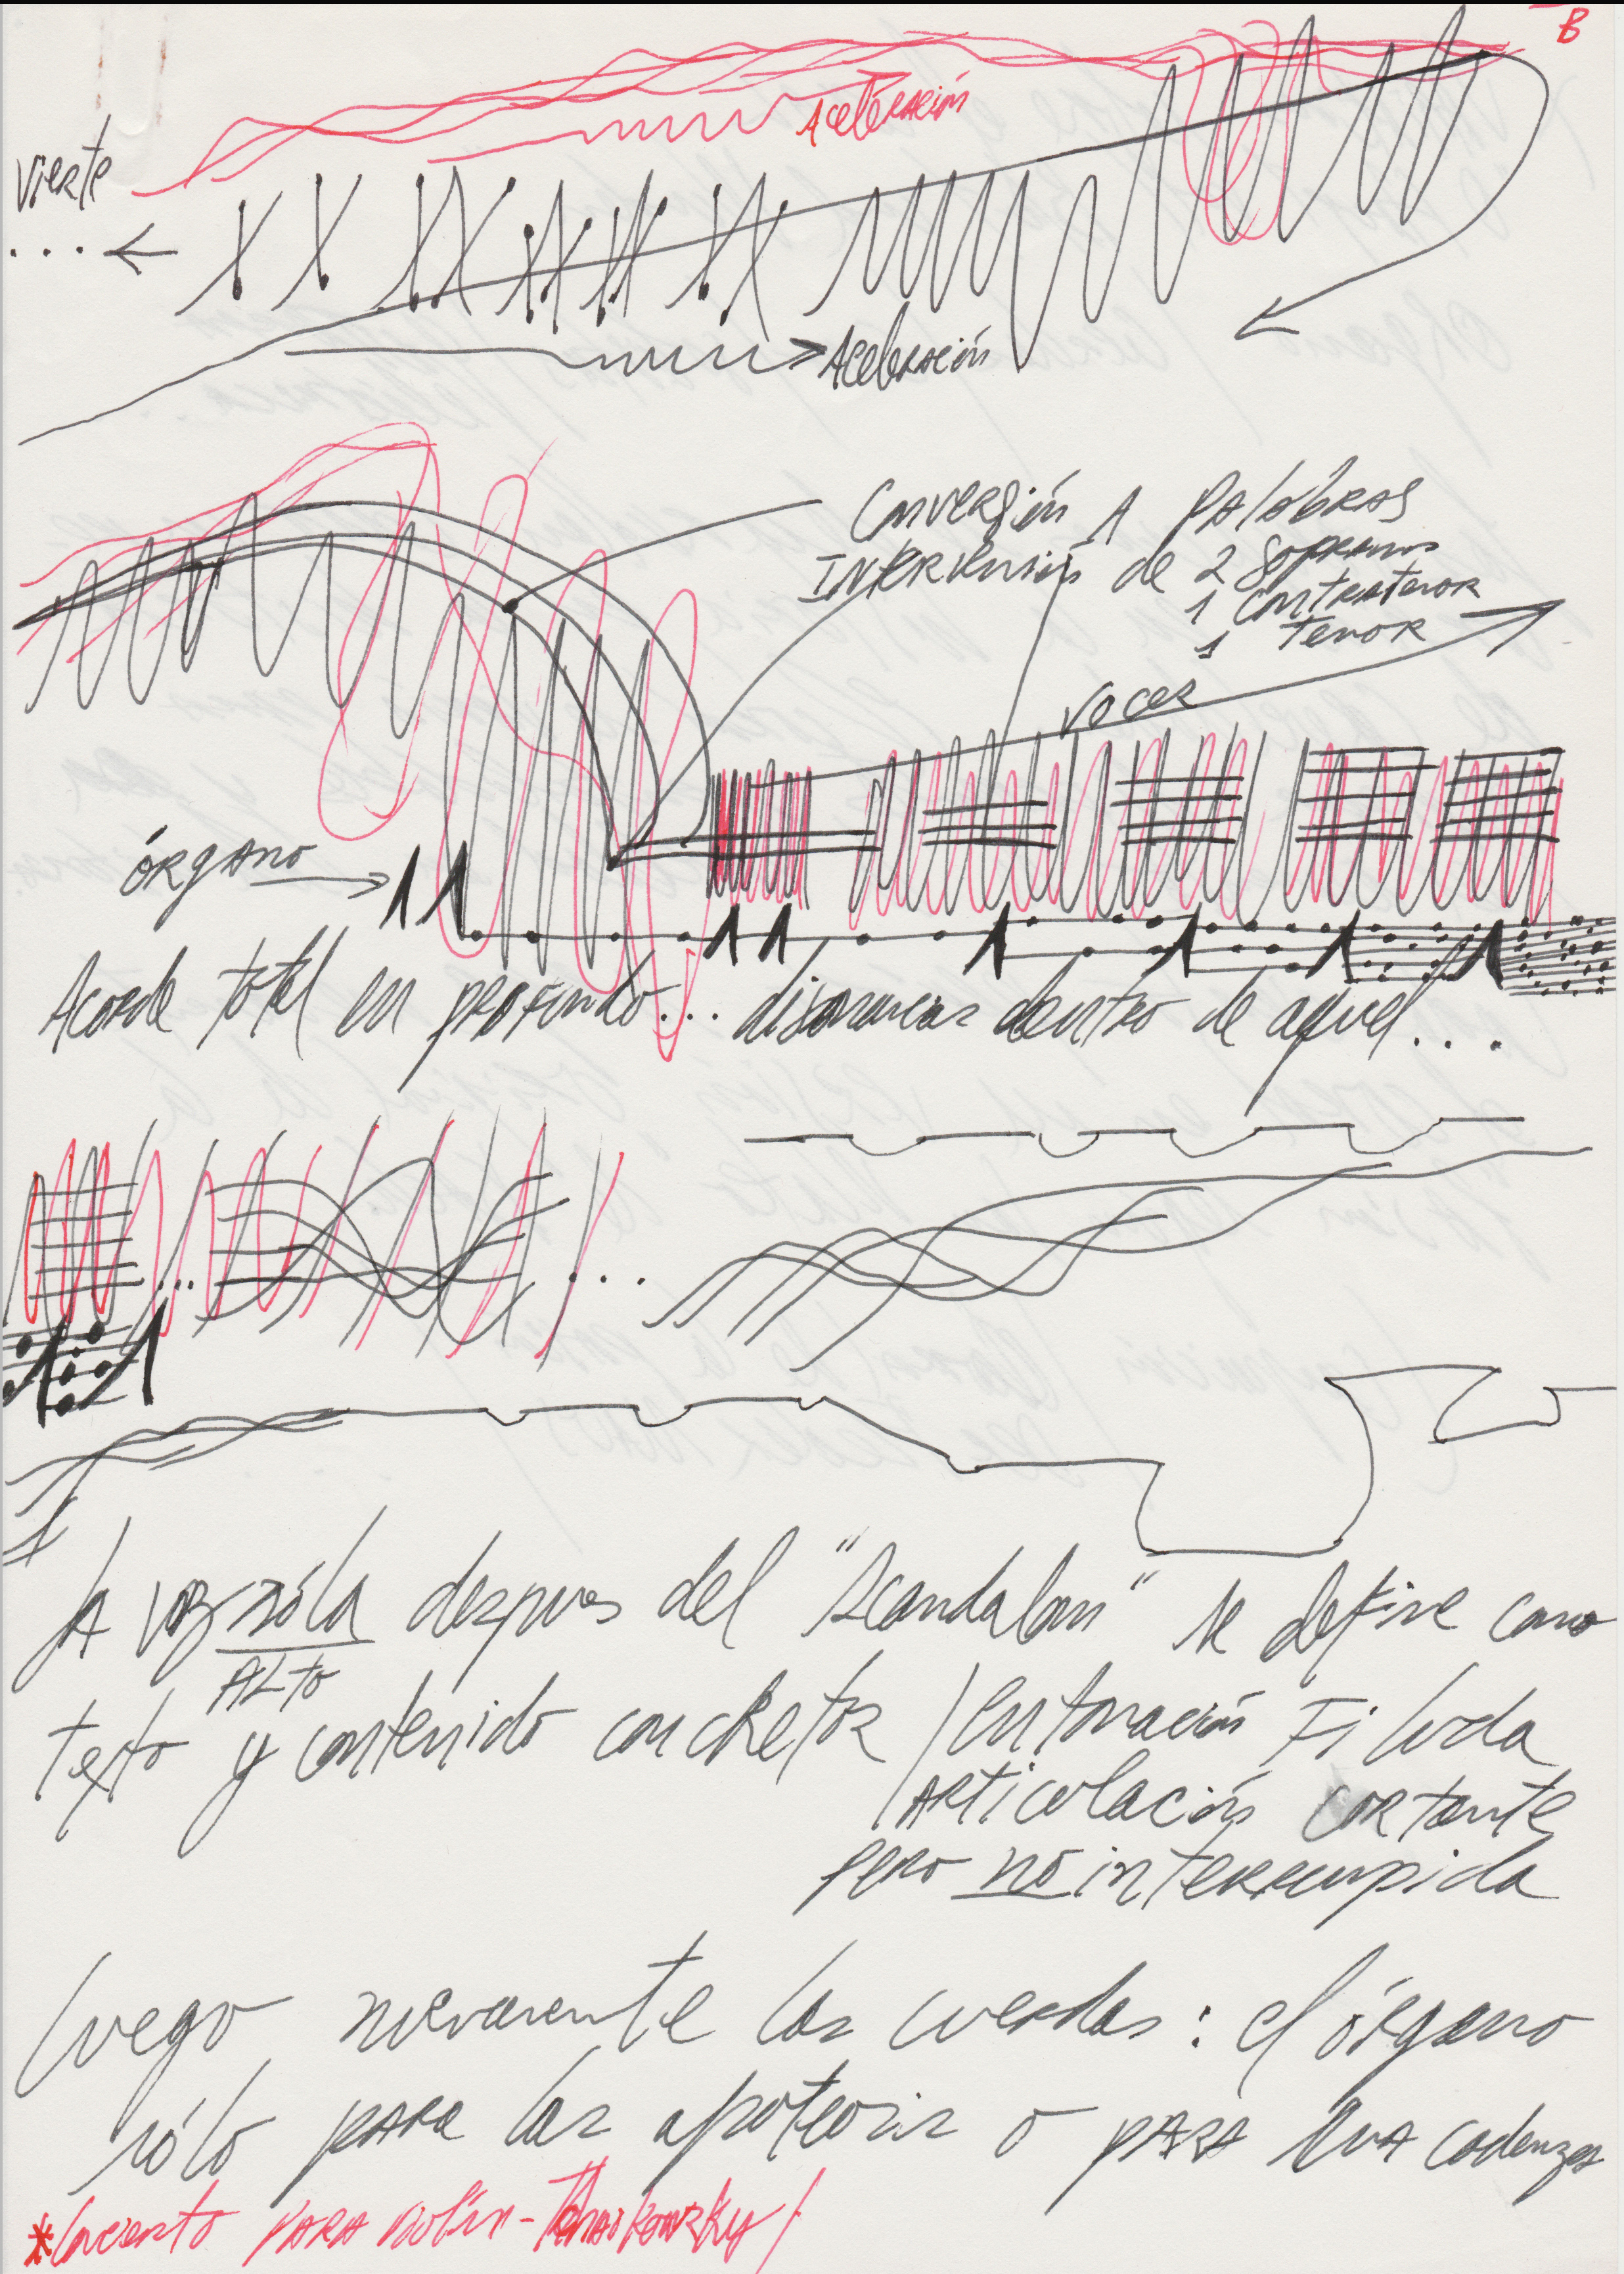 B
Aceleración
vierte
...
Aceleración
Conversión A palabras
Intervención de 2 Sopranos
1 Contratenor
1 Tenor
voces
órgano
Acorde total en profundo... disonancias dentro de aquel...
...
...
La voz sóla despues del "Scandalum" se define como
ALTO
texto y contenido concretos / entonación Filuda
/ Articulación cortante
pero no interrumpida
luego nuevamente las cuerdas: el órgano
sólo para las apoteosis o para una cadenza
*Concierto para violín - Tchaikowsky /